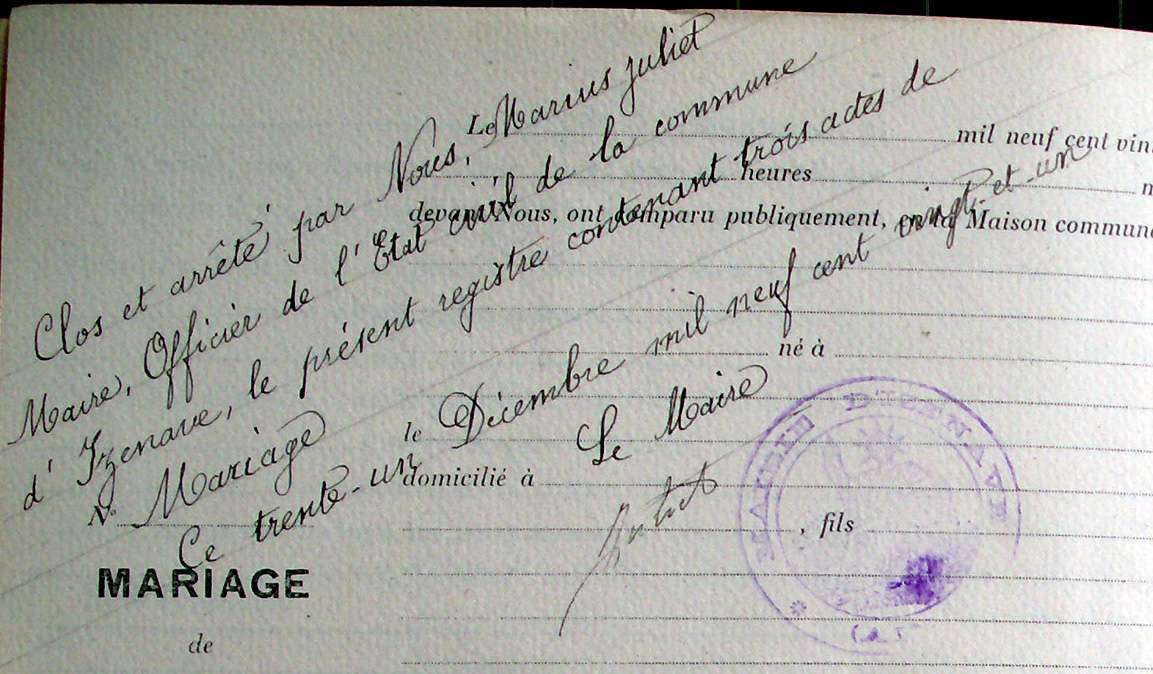 Clos et arrêté par Nous, Marius Juliet
Maire, Officier de l'Etat civil de la commune
d'Izenave, le présent registre contenant trois actes de
Mariage
Ce trente-un Décembre mil neuf cent vingt-et-un
Le Maire
Juliet
Le
mil neuf cent vin
heures
devant Nous, ont comparu publiquement, en la Maison commune
né à
le
domicilié à
, fils
N°
MARIAGE
de
MAIRIE D'IZENAVE